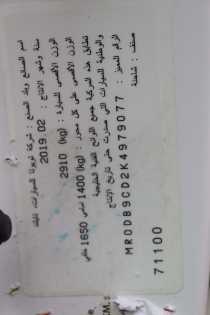 اسم الصانع وبلد الصنع : شركة تويوتا للسيارات، تايلند
سنة وشهر الإنتاج : 2019.02
الوزن الأقصى للسيارة : (kg) 2910
الوزن الأقصى على كل محور : (kg) 1400 أمامي 1650 خلفي
تطابق هذه المركبة جميع اللوائح الفنية الخليجية
والوطنية للسيارات التي صدرت حتى تاريخ الإنتاج
الرقم المميز : MR0DB9CD2K4979077
صنف : شاحنة
71100